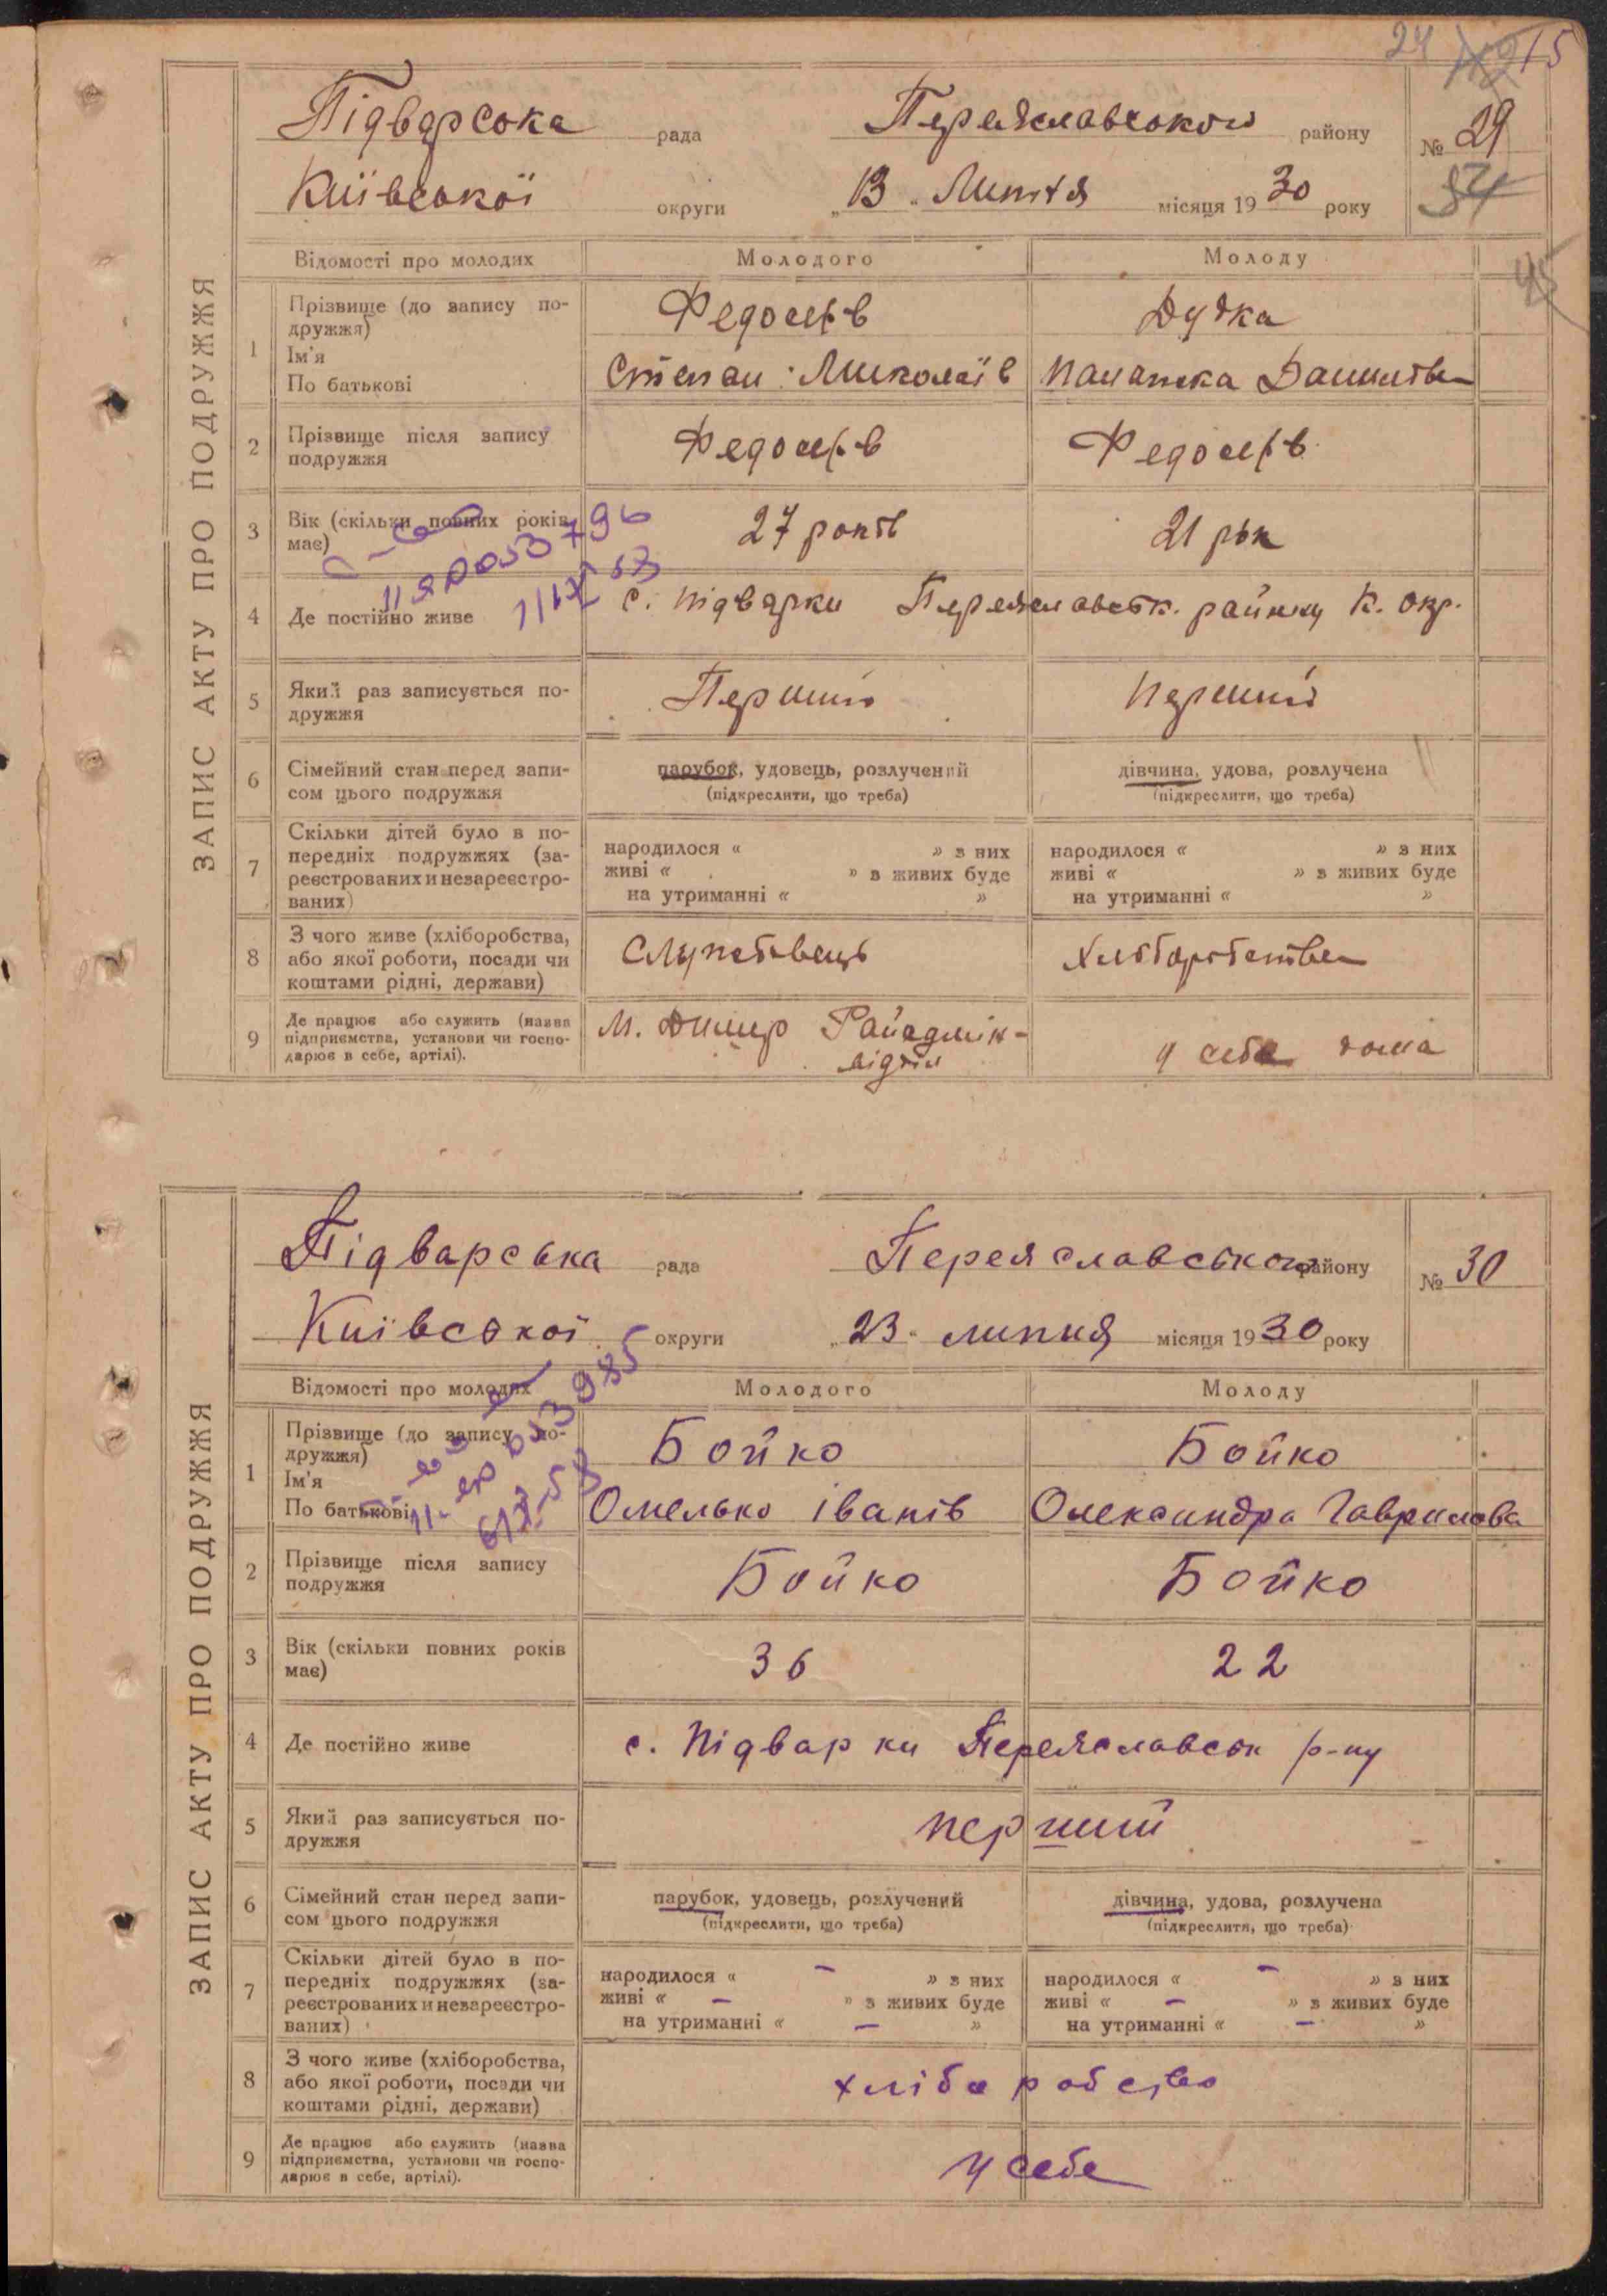 24 15
Підварська рада Переяславського району № 29
Київської округи „13“ Липня місяця 1930 року 34
45
ЗАПИС АКТУ ПРО ПОДРУЖЖЯ
Відомості про молодих Молодого Молоду
1 Прізвище (до запису по-
дружжя)
Ім'я
По батькові
Дудка
Степан Миколаїв
2 Прізвище після запису
подружжя
3 Вік (скільки повних років
має)
27 років 21 рік
4 Де постійно живе с. Підварки Переяславськ. району К. окр.
5 Який раз записується по-
дружжя
Перший Перший
6 Сімейний стан перед запи-
сом цього подружжя
парубок, удовець, розлучений
(підкреслити, що треба)
дівчина, удова, розлучена
(підкреслити, що треба)
7 Скільки дітей було в по-
передніх подружжях (за-
реєстрованих и незареєстро-
ваних)
народилося « » з них
живі « » з живих буде
на утриманні « »
народилося « » з них
живі « » з живих буде
на утриманні « »
8 З чого живе (хліборобства,
або якої роботи, посади чи
коштами рідні, держави)
9 Де працює або служить (назва
підприємства, установи чи госпо-
дарює в себе, артілі).
М. Димер Райадмін-
відділ
у себе дома
Підварська рада Переяславського району № 30
Київської округи „23“ липня місяця 1930 року
ЗАПИС АКТУ ПРО ПОДРУЖЖЯ
Відомості про молодих Молодого Молоду
1 Прізвище (до запису по-
дружжя)
Ім'я
По батькові
Бойко Бойко
Омелько Іванів Олександра Гаврилова
2 Прізвище після запису
подружжя
Бойко Бойко
3 Вік (скільки повних років
має)
36 22
4 Де постійно живе с. Підварки Переяславськ р-ну
5 Який раз записується по-
дружжя
перший
6 Сімейний стан перед запи-
сом цього подружжя
парубок, удовець, розлучений
(підкреслити, що треба)
дівчина, удова, розлучена
(підкреслити, що треба)
7 Скільки дітей було в по-
передніх подружжях (за-
реєстрованих и незареєстро-
ваних)
народилося « – » з них
живі « – » з живих буде
на утриманні « – »
народилося « – » з них
живі « – » з живих буде
на утриманні « – »
8 З чого живе (хліборобства,
або якої роботи, посади чи
коштами рідні, держави)
хліборобство
9 Де працює або служить (назва
підприємства, установи чи госпо-
дарює в себе, артілі).
у себе